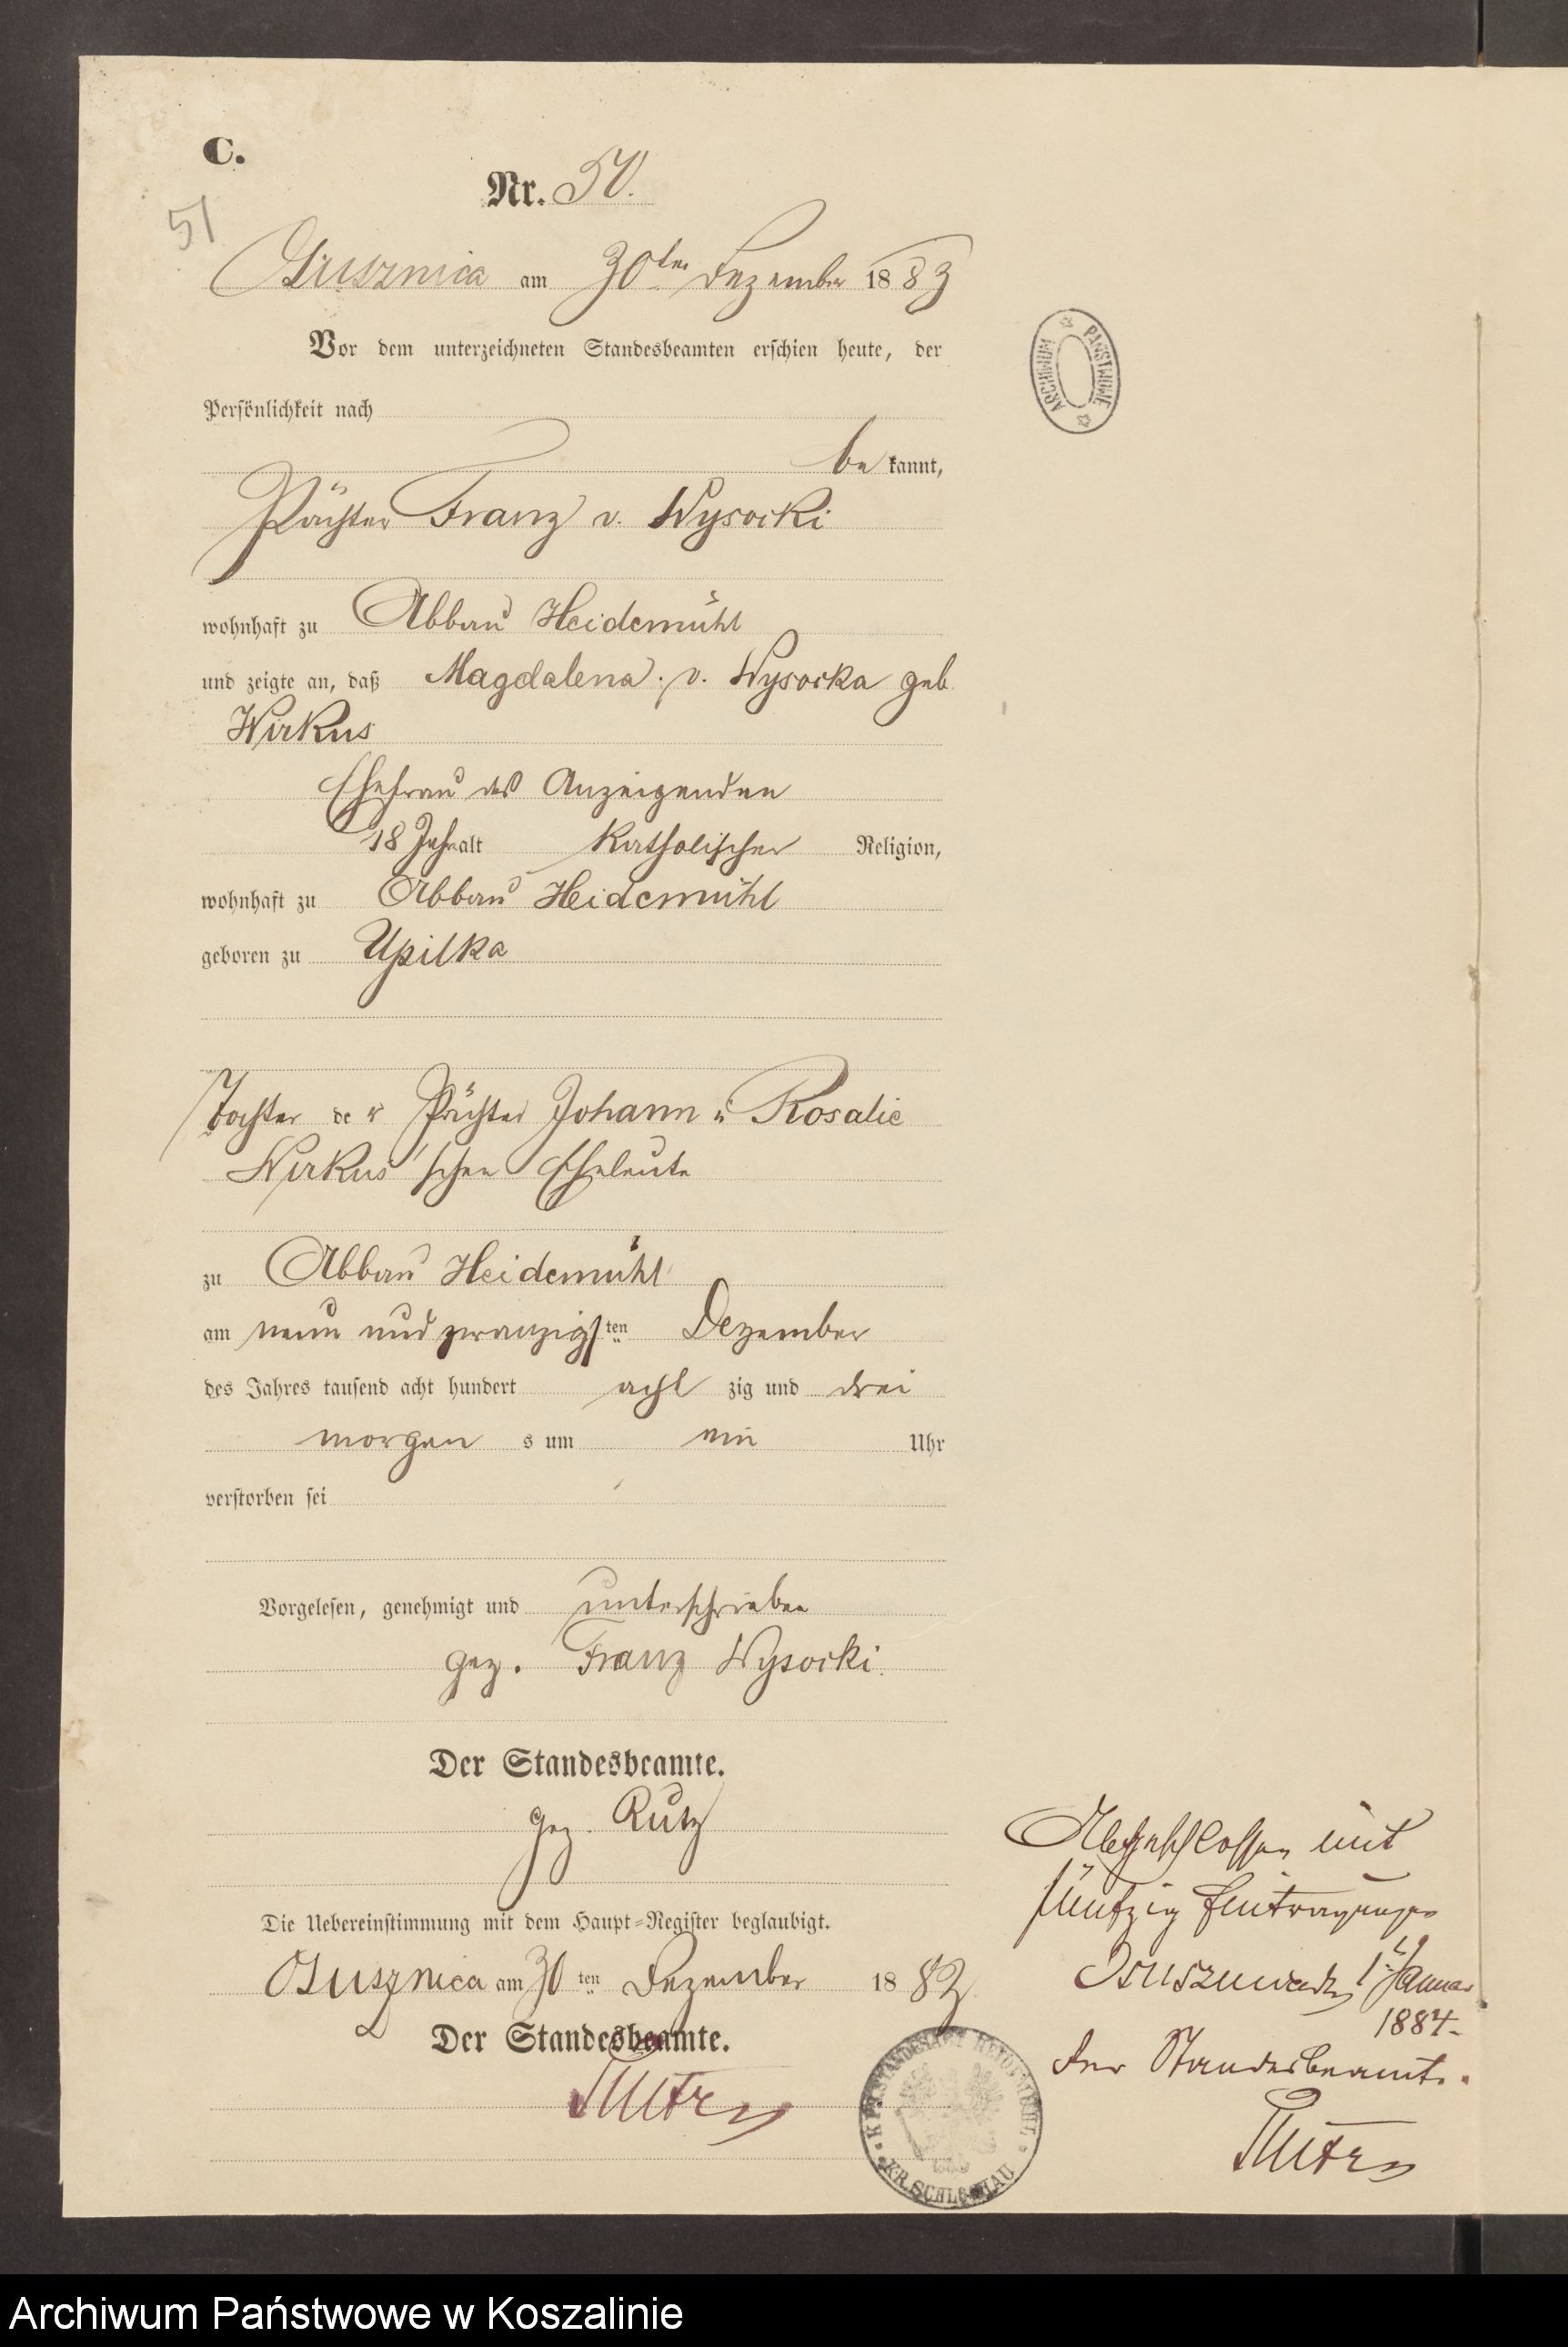 C.
Nr. 50.
51
am 30ten Dezember 1883
Vor dem unterzeichneten Standesbeamten erschien heute, der
Persönlichkeit nach
be kannt,
Pächter Franz v. Wysocki
wohnhaft zu Abbau Heidemühl
und zeigte an, daß Magdalena v. Wysocka geb.
Wirkus
Ehefrau des Anzeigenden
18 Jahr alt katholischer Religion,
wohnhaft zu Abbau Heidemühl
geboren zu Upilka
Tochter der Pächter Johann u Rosalie
Wirkus'schen Eheleute
zu Abbau Heidemühl
am neun und zwanzigsten Dezember
des Jahres tausend acht hundert acht zig und drei
morgen s um ein Uhr
verstorben sei
Vorgelesen, genehmigt und unterschrieben
gez. Franz Wysocki.
Der Standesbeamte.
gez. Rutz
Die Uebereinstimmung mit dem Haupt-Register beglaubigt.
am 30ten Dezember 1883
Der Standesbeamte.
KR. SCHLOCHAU
Abgeschlossen mit
fünfzig Eintragungen
1t Januar
1884.
Der Standesbeamte.
ARCHIWUM PAŃSTWOWE
Archiwum Państwowe w Koszalinie